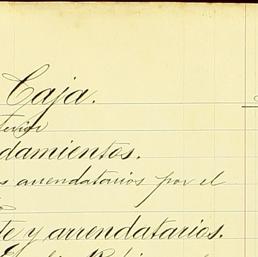 Caja.
terior
damientos.
s arrendatarios por el
te y arrendatarios.